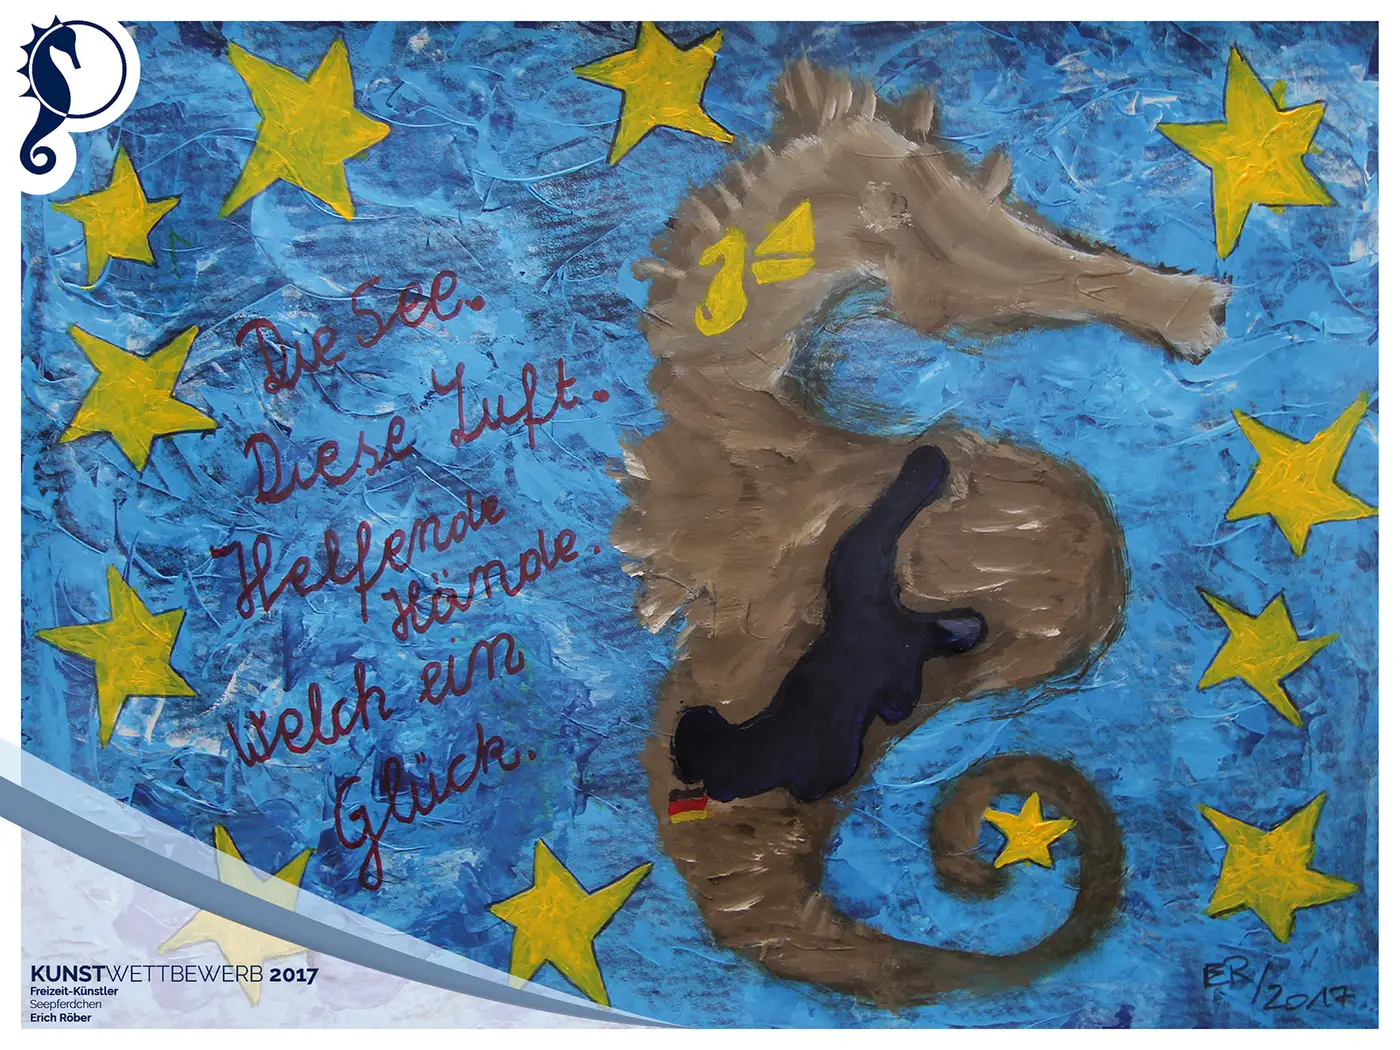 Die See.
Diese Luft.
Helfende
Hände.
Welch ein
Glück.
ER/2017
KUNSTWETTBEWERB 2017
Freizeit-Künstler
Seepferdchen
Erich Röber